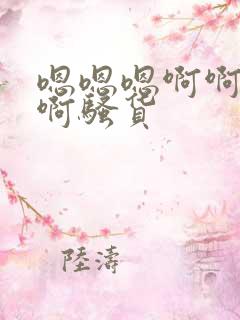 嗯嗯嗯啊啊
啊骚货
陸濤